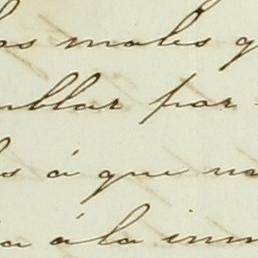 os males q
ablar por
s á que no
a á la inm